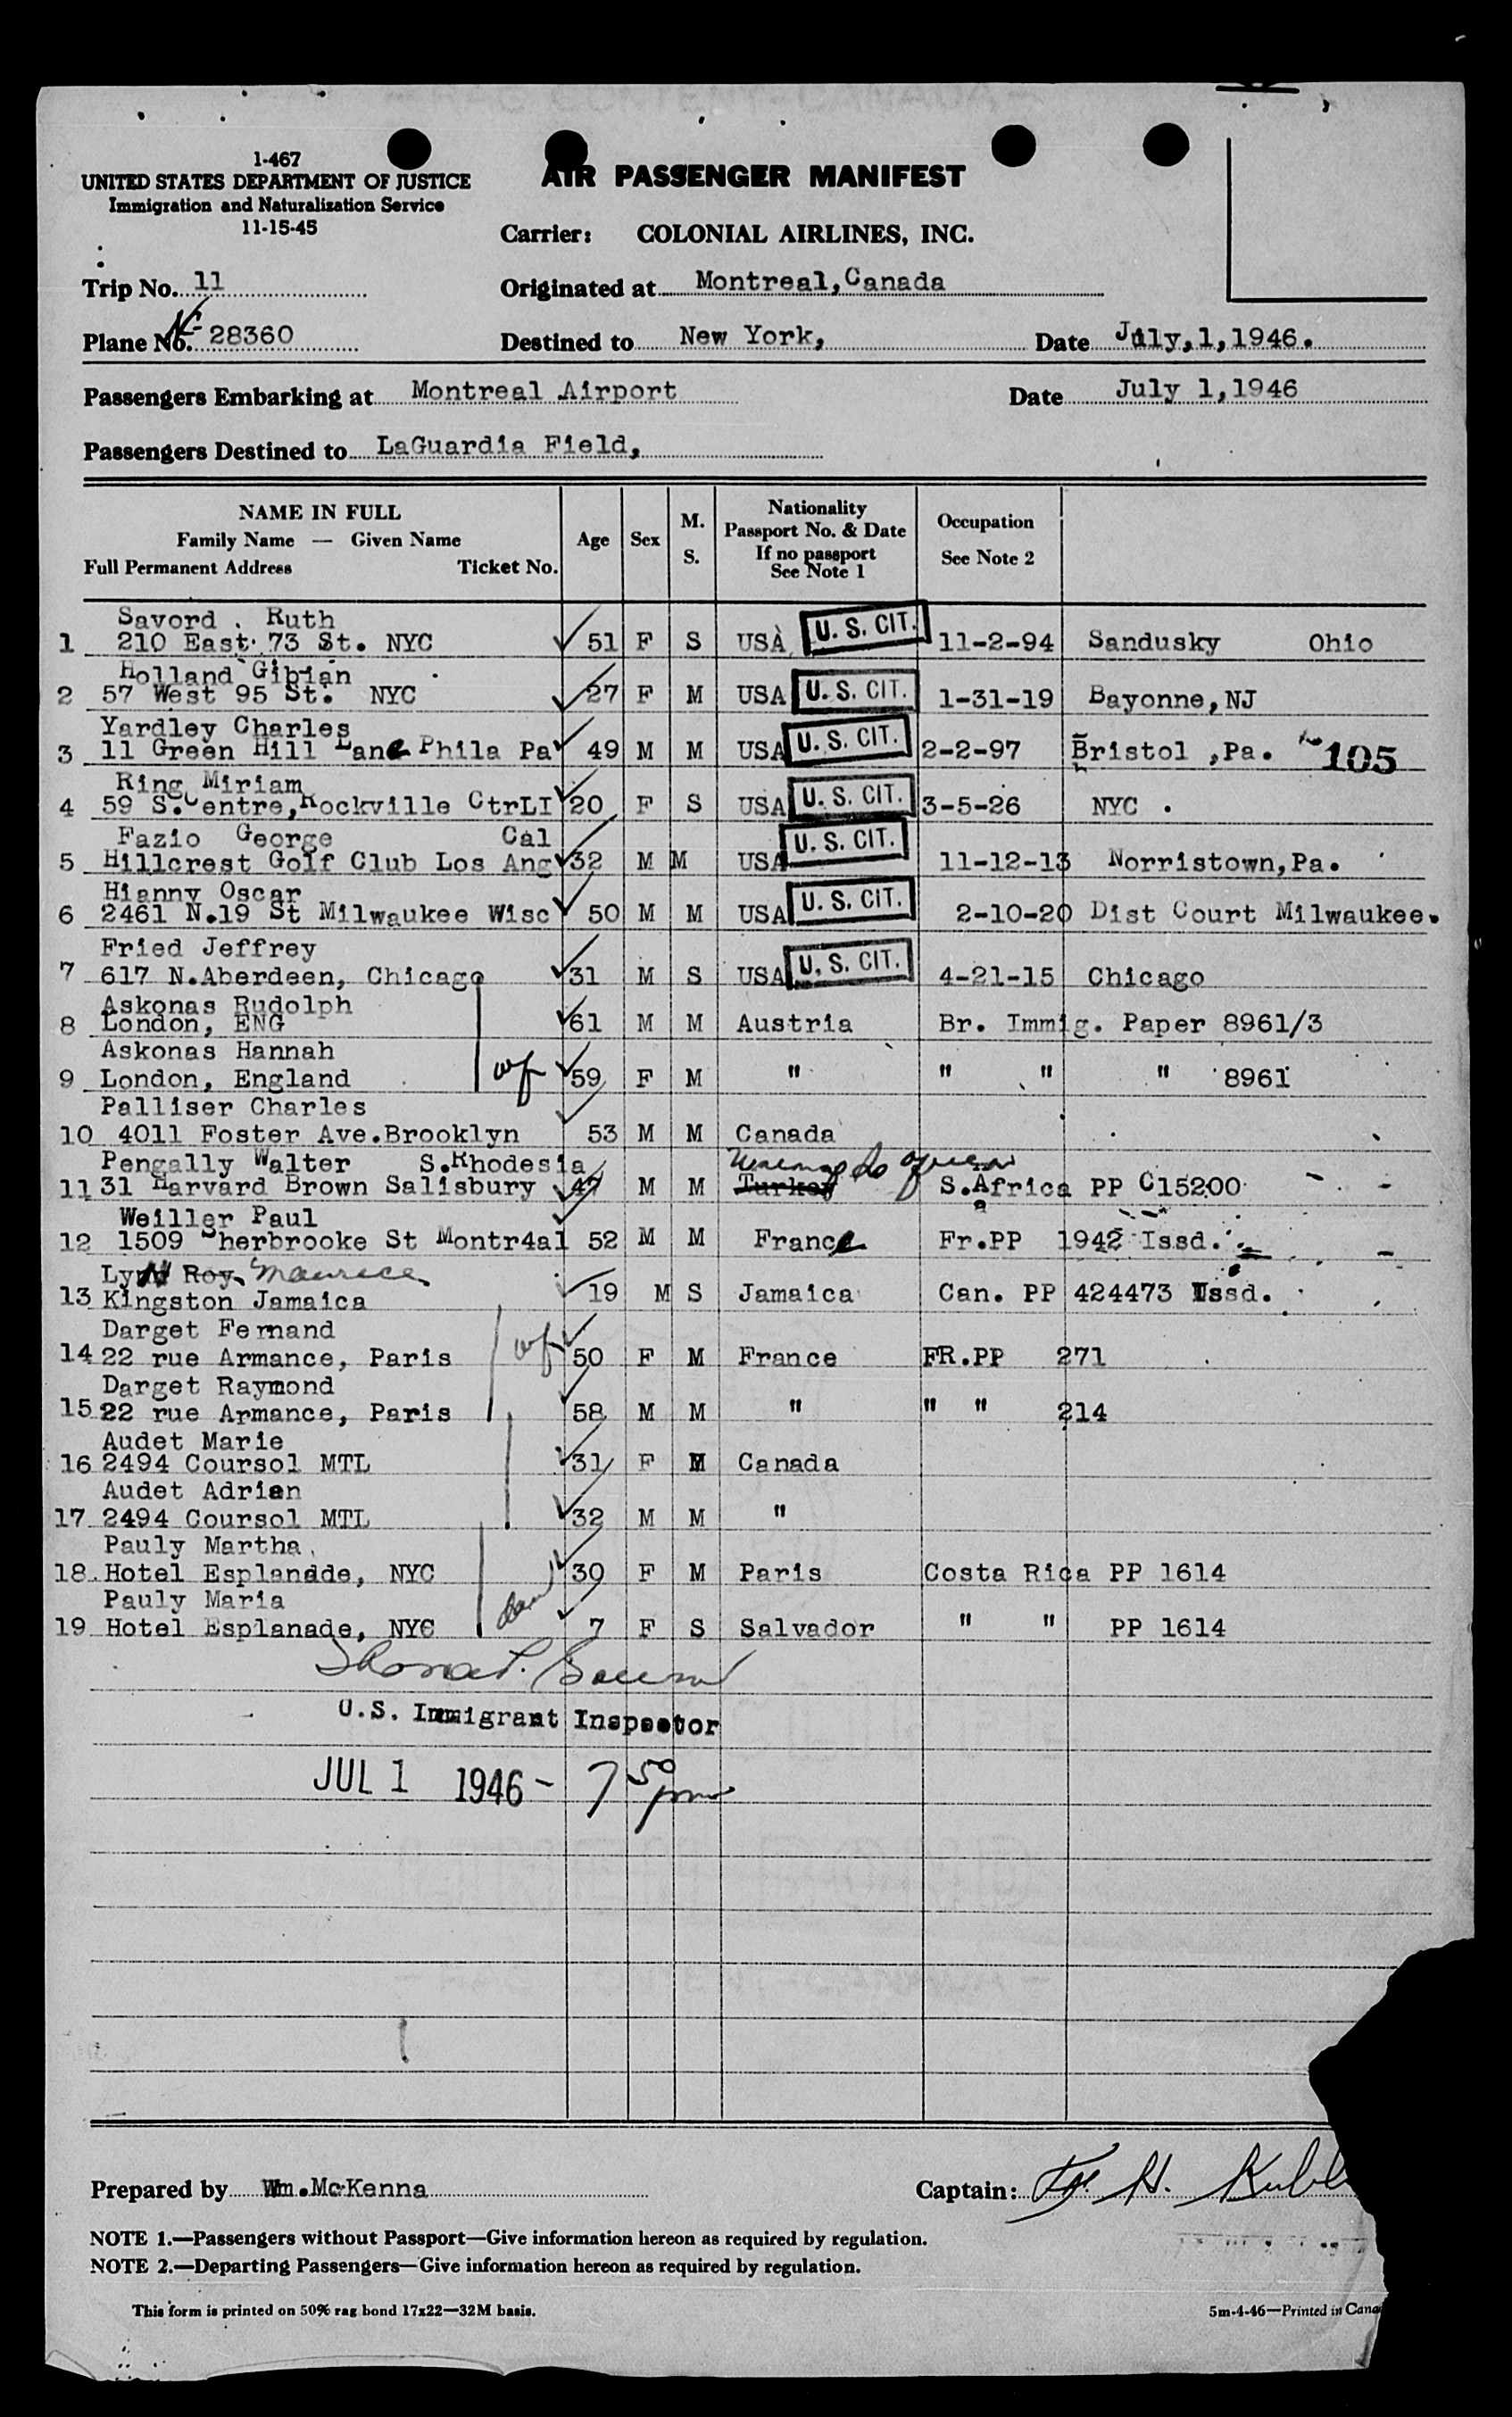 1-467
UNITED STATES DEPARTMENT OF JUSTICE
Immigration and Naturalization Service
11-15-45
AIR PASSENGER MANIFEST
Carrier: COLONIAL AIRLINES, INC.
Trip No. 11
Originated at Montreal,Canada
Plane No. NC 28360
Destined to New York,
Date July,1,1946.
Passengers Embarking at Montreal Airport
Date July 1,1946
Passengers Destined to LaGuardia Field,
NAME IN FULL
Family Name — Given Name
Full Permanent Address Ticket No.
Age
Sex
M.
S.
Nationality
Passport No. & Date
If no passport
See Note 1
Occupation
See Note 2
Savord . Ruth
1 210 East 73 St. NYC 51 F S USA U. S. CIT. 11-2-94 Sandusky Ohio
Holland Gibian
2 57 West 95 St. NYC 27 F M USA U. S. CIT. 1-31-19 Bayonne,NJ
Yardley Charles
3 11 Green Hill Lane Phila Pa 49 M M USA U. S. CIT. 2-2-97 Bristol ,Pa. 105
Ring Miriam
4 59 S.Centre,Rockville CtrLI 20 F S USA U. S. CIT. 3-5-26 NYC .
Fazio George Cal
5 Hillcrest Golf Club Los Ang 32 M M USA U. S. CIT. 11-12-13 Norristown,Pa.
Hianny Oscar
6 2461 N.19 St Milwaukee Wisc 50 M M USA U. S. CIT. 2-10-20 Dist Court Milwaukee.
Fried Jeffrey
7 617 N.Aberdeen, Chicago 31 M S USA U. S. CIT. 4-21-15 Chicago
Askonas Rudolph
8 London, ENG 61 M M Austria Br. Immig. Paper 8961/3
Askonas Hannah
9 London, England wf 59 F M " " " " 8961
Palliser Charles
10 4011 Foster Ave.Brooklyn 53 M M Canada
Pengally Walter S.Rhodesia
11 31 Harvard Brown Salisbury 47 M M Turkey So Africa S.Africa PP C15200
Weiller Paul
12 1509 Sherbrooke St Montr4al 52 M M France Fr.PP 1942 Issd.
Lynn Roy Maurice
13 Kingston Jamaica 19 M S Jamaica Can. PP 424473 Issd.
Darget Fernand
14 22 rue Armance, Paris wf 50 F M France FR.PP 271
Darget Raymond
15 22 rue Armance, Paris 58 M M " " " 214
Audet Marie
16 2494 Coursol MTL 31 F M Canada
Audet Adrien
17 2494 Coursol MTL 32 M M "
Pauly Martha
18 Hotel Esplanade, NYC 39 F M Paris Costa Rica PP 1614
Pauly Maria
19 Hotel Esplanade, NYC dau 7 F S Salvador " " PP 1614
U.S. Immigrant Inspector
JUL 1 1946 - 7 50 pm
Prepared by Wm.McKenna
Captain: H.
NOTE 1.—Passengers without Passport—Give information hereon as required by regulation.
NOTE 2.—Departing Passengers—Give information hereon as required by regulation.
This form is printed on 50% rag bond 17x22—32M basis.
5m-4-46—Printed in Cana